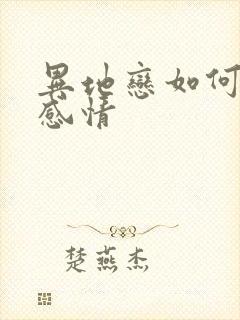 異地戀如何
感情
楚燕杰